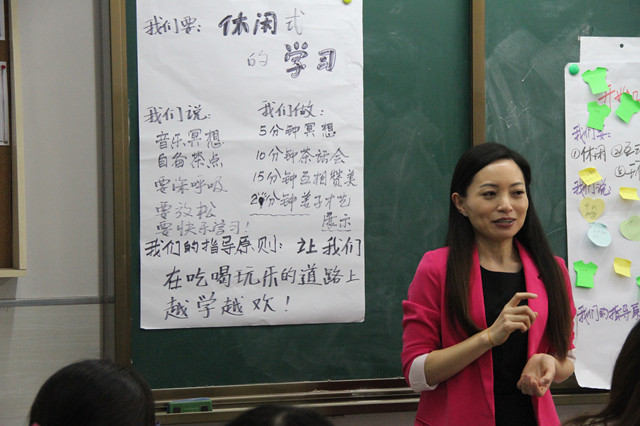 我们要：休闲式
的学习
我们说： 我们做：
音乐冥想 5分钟冥想
自备茶点 10分钟茶话会
要深呼吸 15分钟互相赞美
要放松 20分钟姜子才艺
要快乐学习！ 展示
我们的指导原则：让我们
在吃喝玩乐的道路上
越学越欢！
我们要：
①休闲 ②互动
我们说
我们的指导原